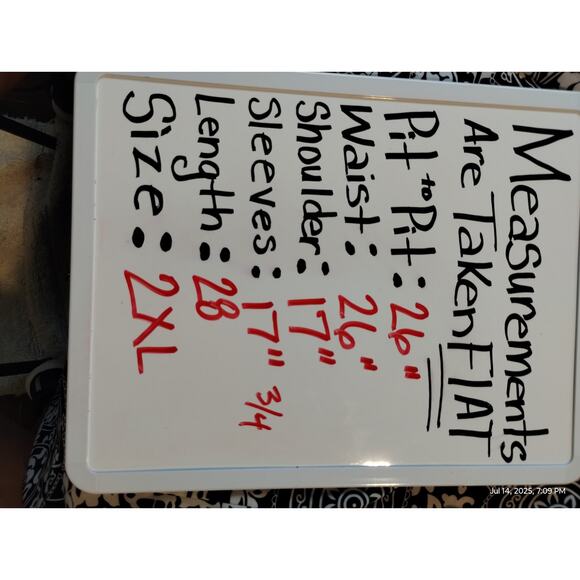 Measurements
Are Taken FlAT
Pit to Pit: 26"
Waist: 26"
Shoulder: 17"
Sleeves: 17" 3/4
Length: 28
Size: 2XL
Jul 14, 2025, 7:09 PM